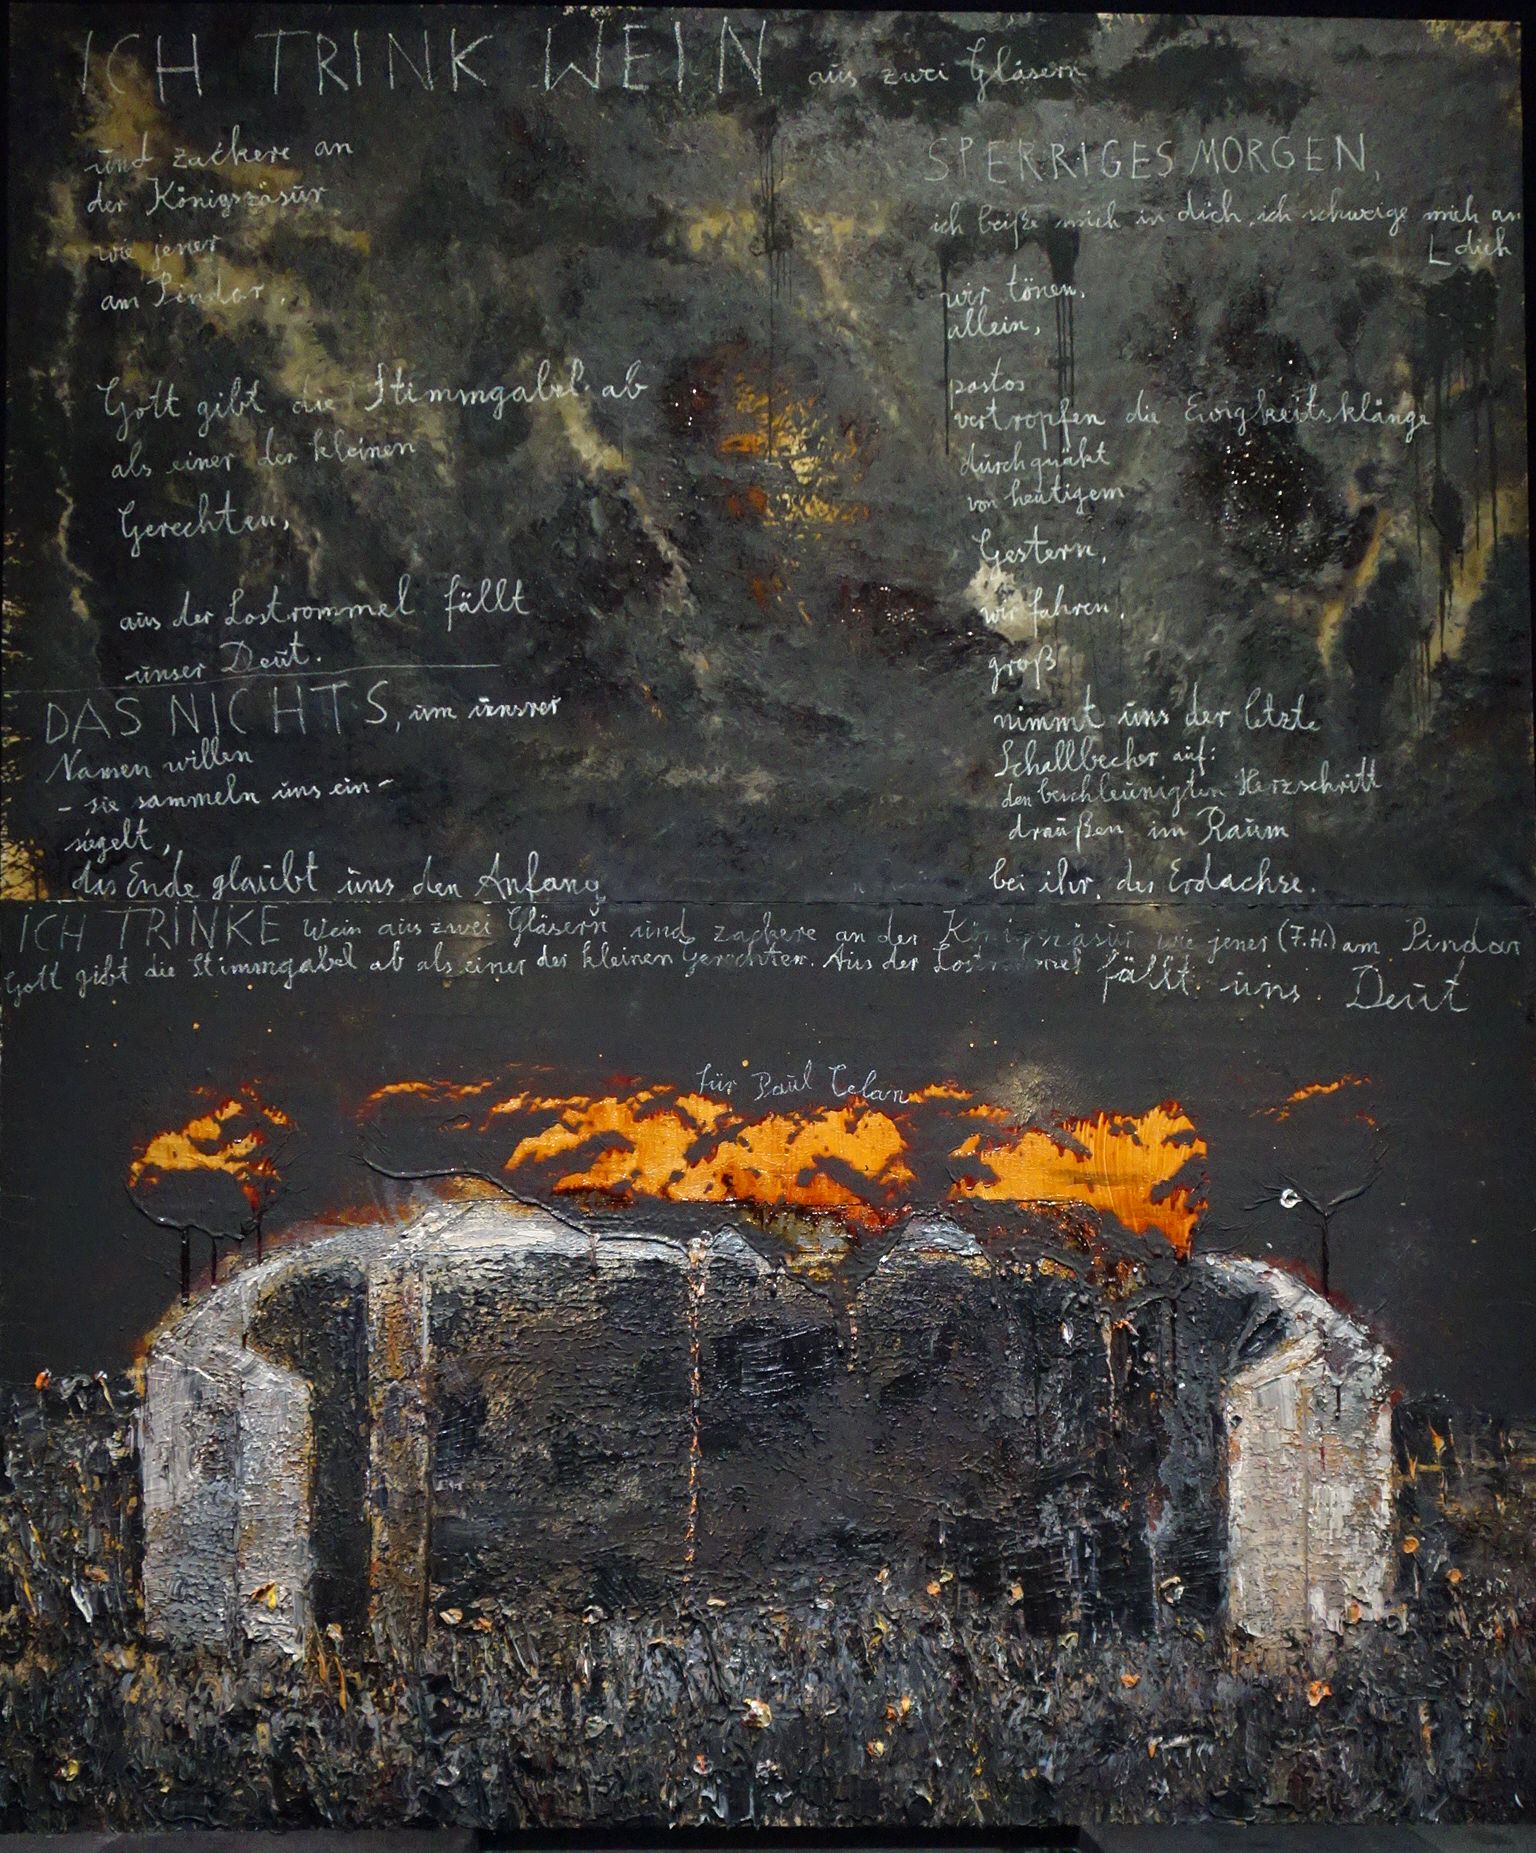 ICH TRINK WEIN aus zwei Gläsern
und zackere an
der Königszäsur
wie jener
am Pindar,
Gott gibt die Stimmgabel ab
als einer der kleinen
Gerechten,
aus der Lostrommel fällt
unser Deut.
DAS NICHTS, um unsrer
Namen willen
- sie sammeln uns ein -
siegelt,
das Ende glaubt uns den Anfang
SPERRIGES MORGEN,
ich beiße mich in dich, ich schweige mich an
dich
wir tönen,
allein,
pastos
vertropfen die Ewigkeitsklänge
durchquäkt
von heutigem
Gestern,
wir fahren,
groß
nimmt uns der letzte
Schallbecher auf:
den beschleunigten Herzschritt
draußen im Raum
bei ihr, der Erdachse.
ICH TRINKE Wein aus zwei Gläsern und zackere an der Königszäsur wie jener (F.H.) am Pindar
Gott gibt die Stimmgabel ab als einer der kleinen Gerechten. Aus der Lostrommel fällt uns Deut
für Paul Celan